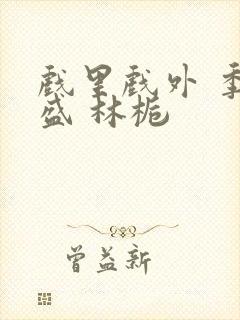 戏里戏外 季
盛 林栀
曾益新